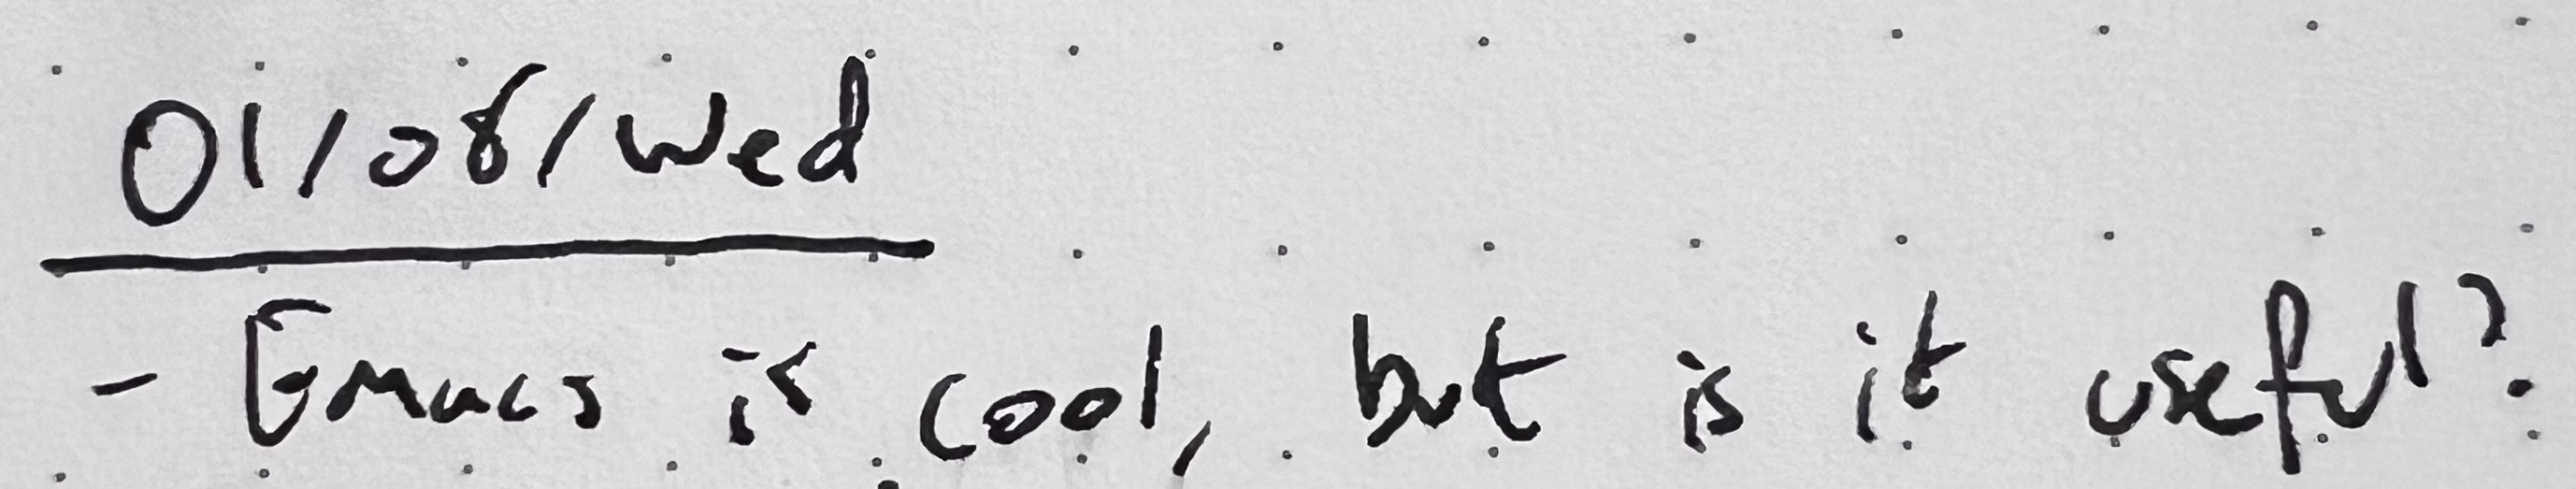 01/08/Wed
- Emacs is cool, but is it useful?